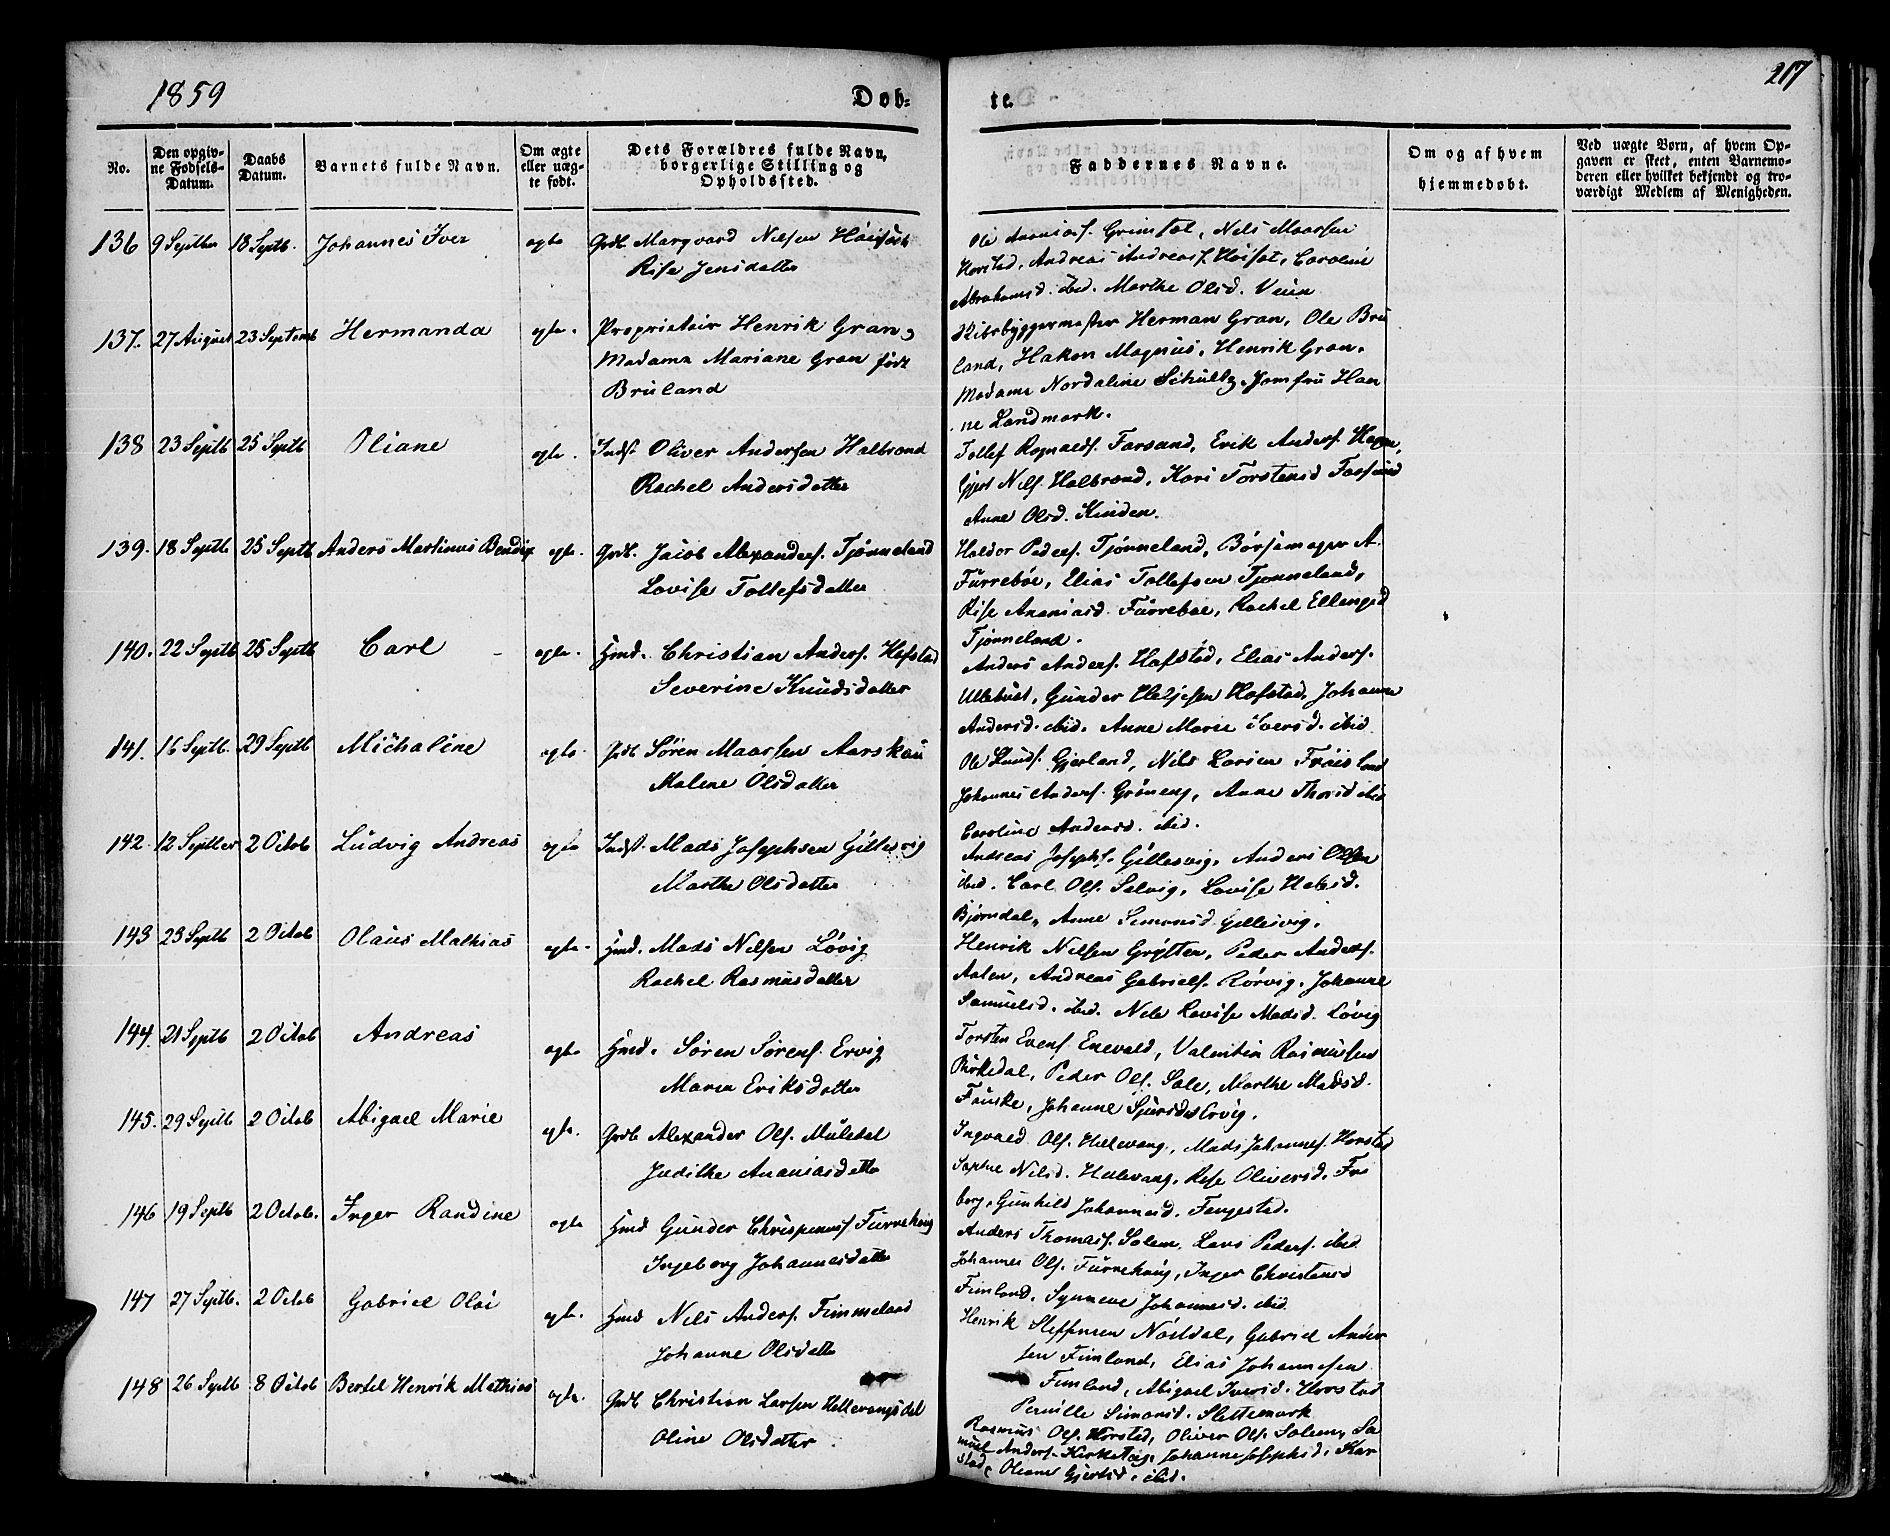 1859
Døb-
te.
217
No.
Den opgiv-
ne Fødsels-
Datum.
Daabs
Datum.
Barnets fulde Navn.
Om ægte
eller uæg-
te født.
Dets Forældres fulde Navn,
borgerlige Stilling og
Opholdssted.
Faddernes Navne.
Om og af hvem
hjemmedøbt.
Ved uægte Børn, af hvem Op-
gaven er skeet, enten Barnemo-
deren eller hvilket bekjendt og tro-
værdigt Medlem af Menigheden.
136 9 Septber 18 Septb. Johannes Iver ægte Grdb. Marqvard Nilsen
Rise Jensdatter
Ole Ananias. Grimstøl, Nils Maarsen
Horstad, Andreas Andreas. Høisæt, Caroline
Abrahamsd. ibid. Marthe Olsd. Veien
137. 27 August 23 Septemb Hermanda ægte. Proprietair Henrik Gran,
Madame Mariane Gran født
Bruland
Skibsbyggermester Herman Gran, Ole Bru
land, Hakon Magnus, Henrik Gran,
Madame Nordaline Schultz, Jomfru Han
ne Landmark.
138 23 Septb 25 Septb Oliane ægte. Indst. Oliver Andersen Halbrand
Rachel Andersdatter
Tollef Rognalds. Farsund, Erik Anders. Hagen,
Gjert Nils. Halbrand, Kari Torstensd Farsund
Anne Olsd. Kinden.
139. 18 Septb 25 Septb Anders Martinus Bendix ægte. Grdb. Jacob Alexanders. Tjønneland
Lovise Tollefsdatter
Haldor Peders. Tjønneland, Børsemager A.
Furrebøe, Elias Tollefsen Tjønneland,
Rise Ananiasd. Furrebøe, Rachel Ellengsd
Tjønneland.
140. 22 Septb 25 Septb Carl ægte. Hmd. Christian Anders. Hafstad
Severine Knudsdatter
Anders Anders. Hafstad, Elias Anders.
Gunder Helgesen Hafstad, Johanne
Andersd. ibid. Anne Marie Iversd. ibid
141. 16 Septb. 29 Septb Michaline ægte. Grdb Søren Maarsen Aarskau
Malene Olsdatter
Ole Knuds. Gjerland, Nils Larsen Frøisland
Johannes Anders. Grøneng, Anne Thorsd ibid
Caroline Andersd. ibid.
142. 12 Septber 2 Octob Ludvig Andreas ægte Indst. Mads Josephsen Gillesvig
Marthe Olsdatter
Andreas Josephs. Gillesvig, Anders Olsen
ibid. Carl Ols. Solvig, Lovise
Bjørndal, Anne Simonsd. Gillesvig.
143 23 Septb 2 Octob Olaus Mathias ægte. Hmd. Mads Nilsen Løvig
Rachel Rasmusdatter
Henrik Nilsen Grytten, Peder Anders.
Aalen, Andreas Gabriels. Rørvig, Johanne
Samuelsd. ibid. Lovise Madsd. Løvig
144. 21 Septb 2 Octob Andreas ægte Hmd. Søren Sørens. Ervig
Maren Eriksdatter
Torsten Evens. Enevald, Valentin Rasmussen
Birkedal, Peder Ols. Sole, Marthe Madsd.
Fauske, Johanne Sjursd Ervig.
145. 29 Septb 2 Octob Abigael Marie ægte. Grdb Alexander Ols. Muledal
Judithe Ananiasdatter
Ingvald Ols. Hellevang, Mads Johannes. Horstad
Sophie Nilsd. Hellevang, Rise Oliversd. Fri
borg, Gunhild Johannesd. Tengestad.
146 19 Septb 2 Octob. Inger Randine ægte Hmd Gunder Chrispinus. Furrehøug
Ingeborg Johannesdatter
Anders Thomas. Solem, Lars Peders. ibid
Johannes Ols. Furrehøug, Inger Christensd
Fimland, Synneve Johannesd. ibid
147 27 Septb. 2 Octob Gabriel Olai ægte. Hmd Nils Anders. Fimmeland
Johanne Olsdatter
Henrik Steffensen Nøstdal, Gabriel Ander
sen Fimland, Elias Johannesen
Fimland, Abigael Iversd. Horstad
Pernille Simonsd. Slettemark
148 26 Septb 8 Octob Bertel Henrik Mathias ægte. Grdb Christian Larsen Hellevangsdal
Oline Olsdatter
Rasmus Ols. Horstad, Oliver Ols. Solem, Sa
muel Anders. Johanne Josephsd. Kar
stad, Oliane Gjertsd. ibid.